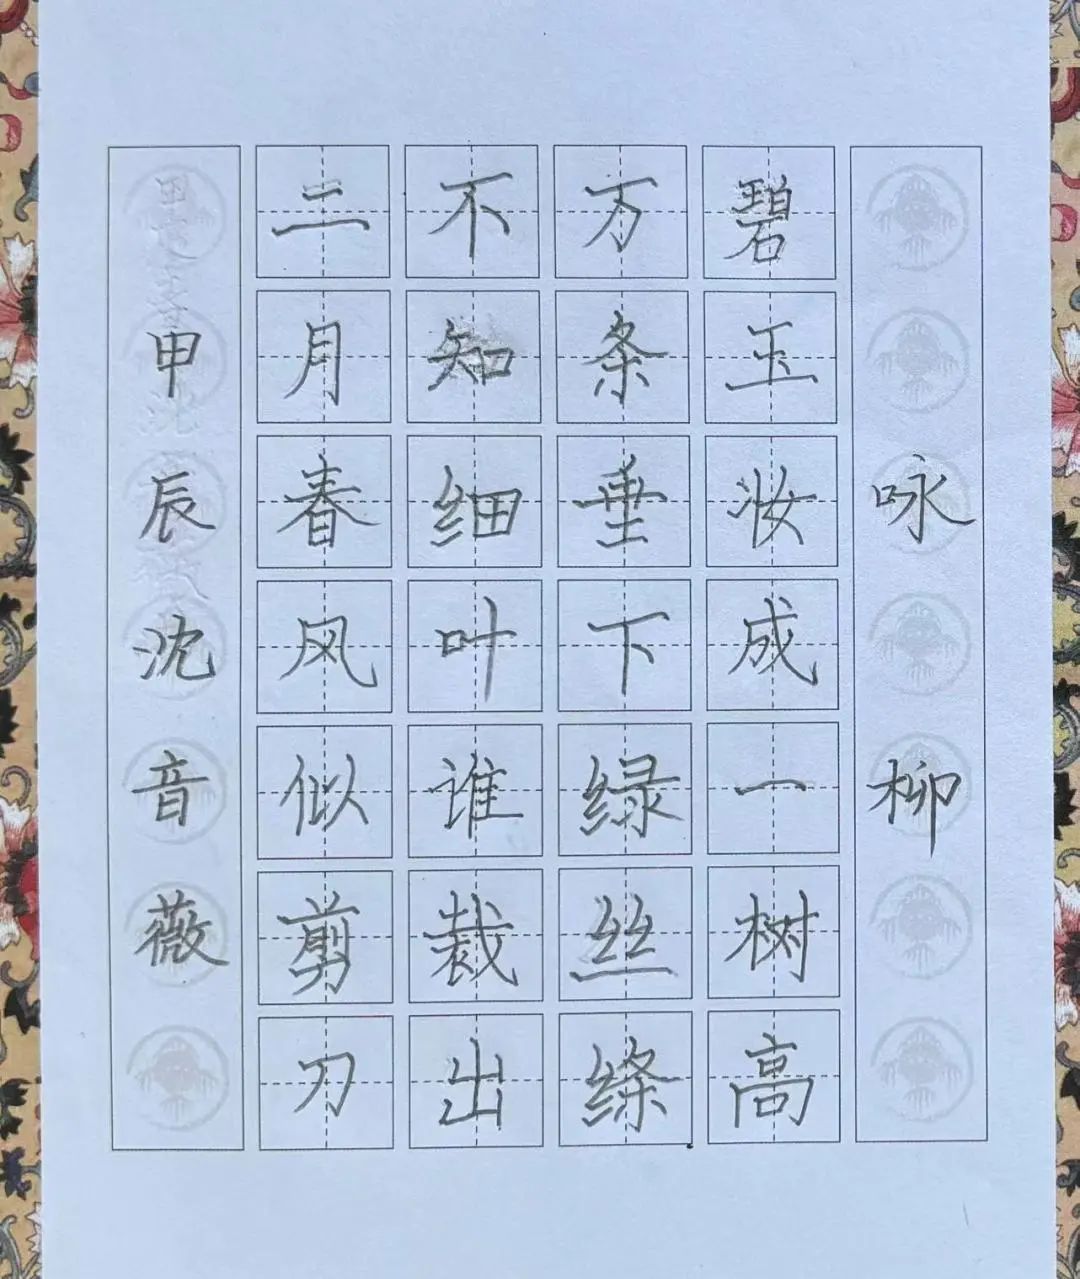 咏柳
碧玉妆成一树高
万条垂下绿丝绦
不知细叶谁裁出
二月春风似剪刀
甲辰沈音薇